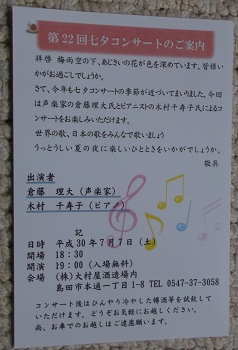 第22回七夕コンサートのご案内
拝啓 梅雨空の下、あじさいの花が色を深めています。皆様いかがお過ごしでしょうか。
さて、今年も七夕コンサートの季節が近づいてまいりました。今回は声楽家の倉藤理大氏とピアニストの木村千寿子氏によるコンサートをお楽しみいただけます。
世界の歌、日本の歌をみんなで歌いましょう
うっとうしい夏の夜に楽しいひとときをいかがでしょうか。
敬具
出演者
倉藤 理大(声楽家)
木村 千寿子(ピアノ)
記
日時 平成30年7月7日(土)
開場 18:30
開演 19:00(入場無料)
会場 (株)大村屋酒造場内
島田市本通一丁目1-8 TEL 0547-37-3058
コンサート後はひんやり冷やした樽酒等を試飲していただけます。どうぞお気軽にお越しください。
尚、お車でのお越しはご遠慮願います。